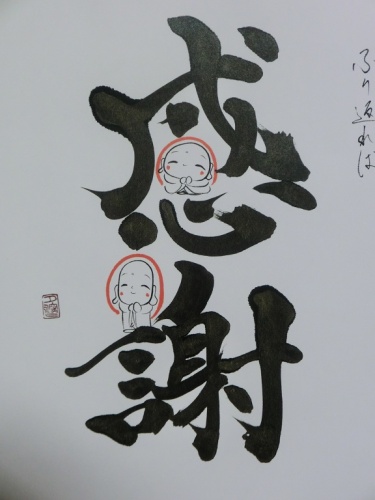 ふり返れば
感謝